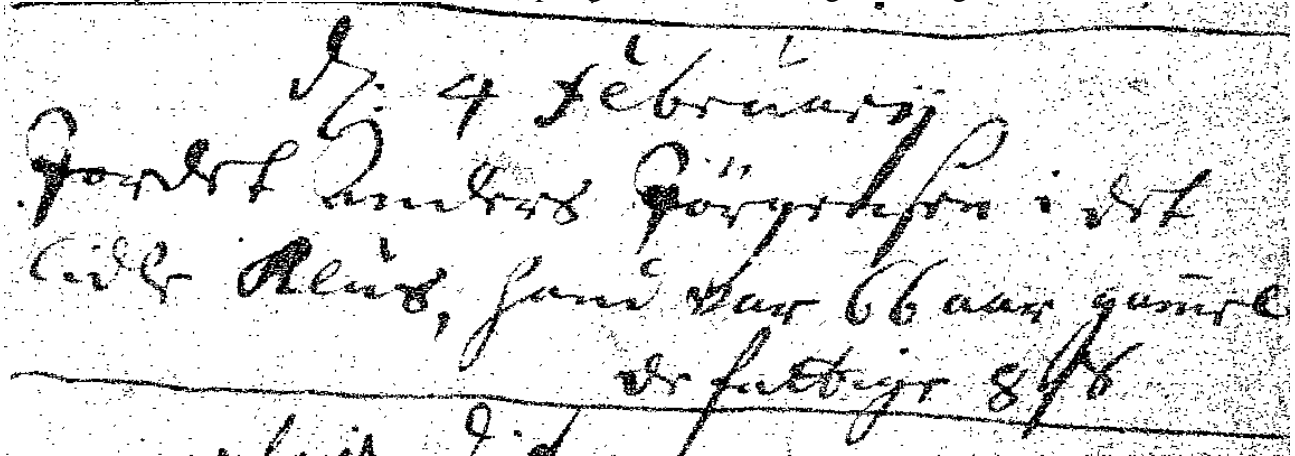 D. 4 Februarij
Jordet Anders Jörgensen i det
lidle Kluus, hand var 66 aar gammel
de fattige 8 ß